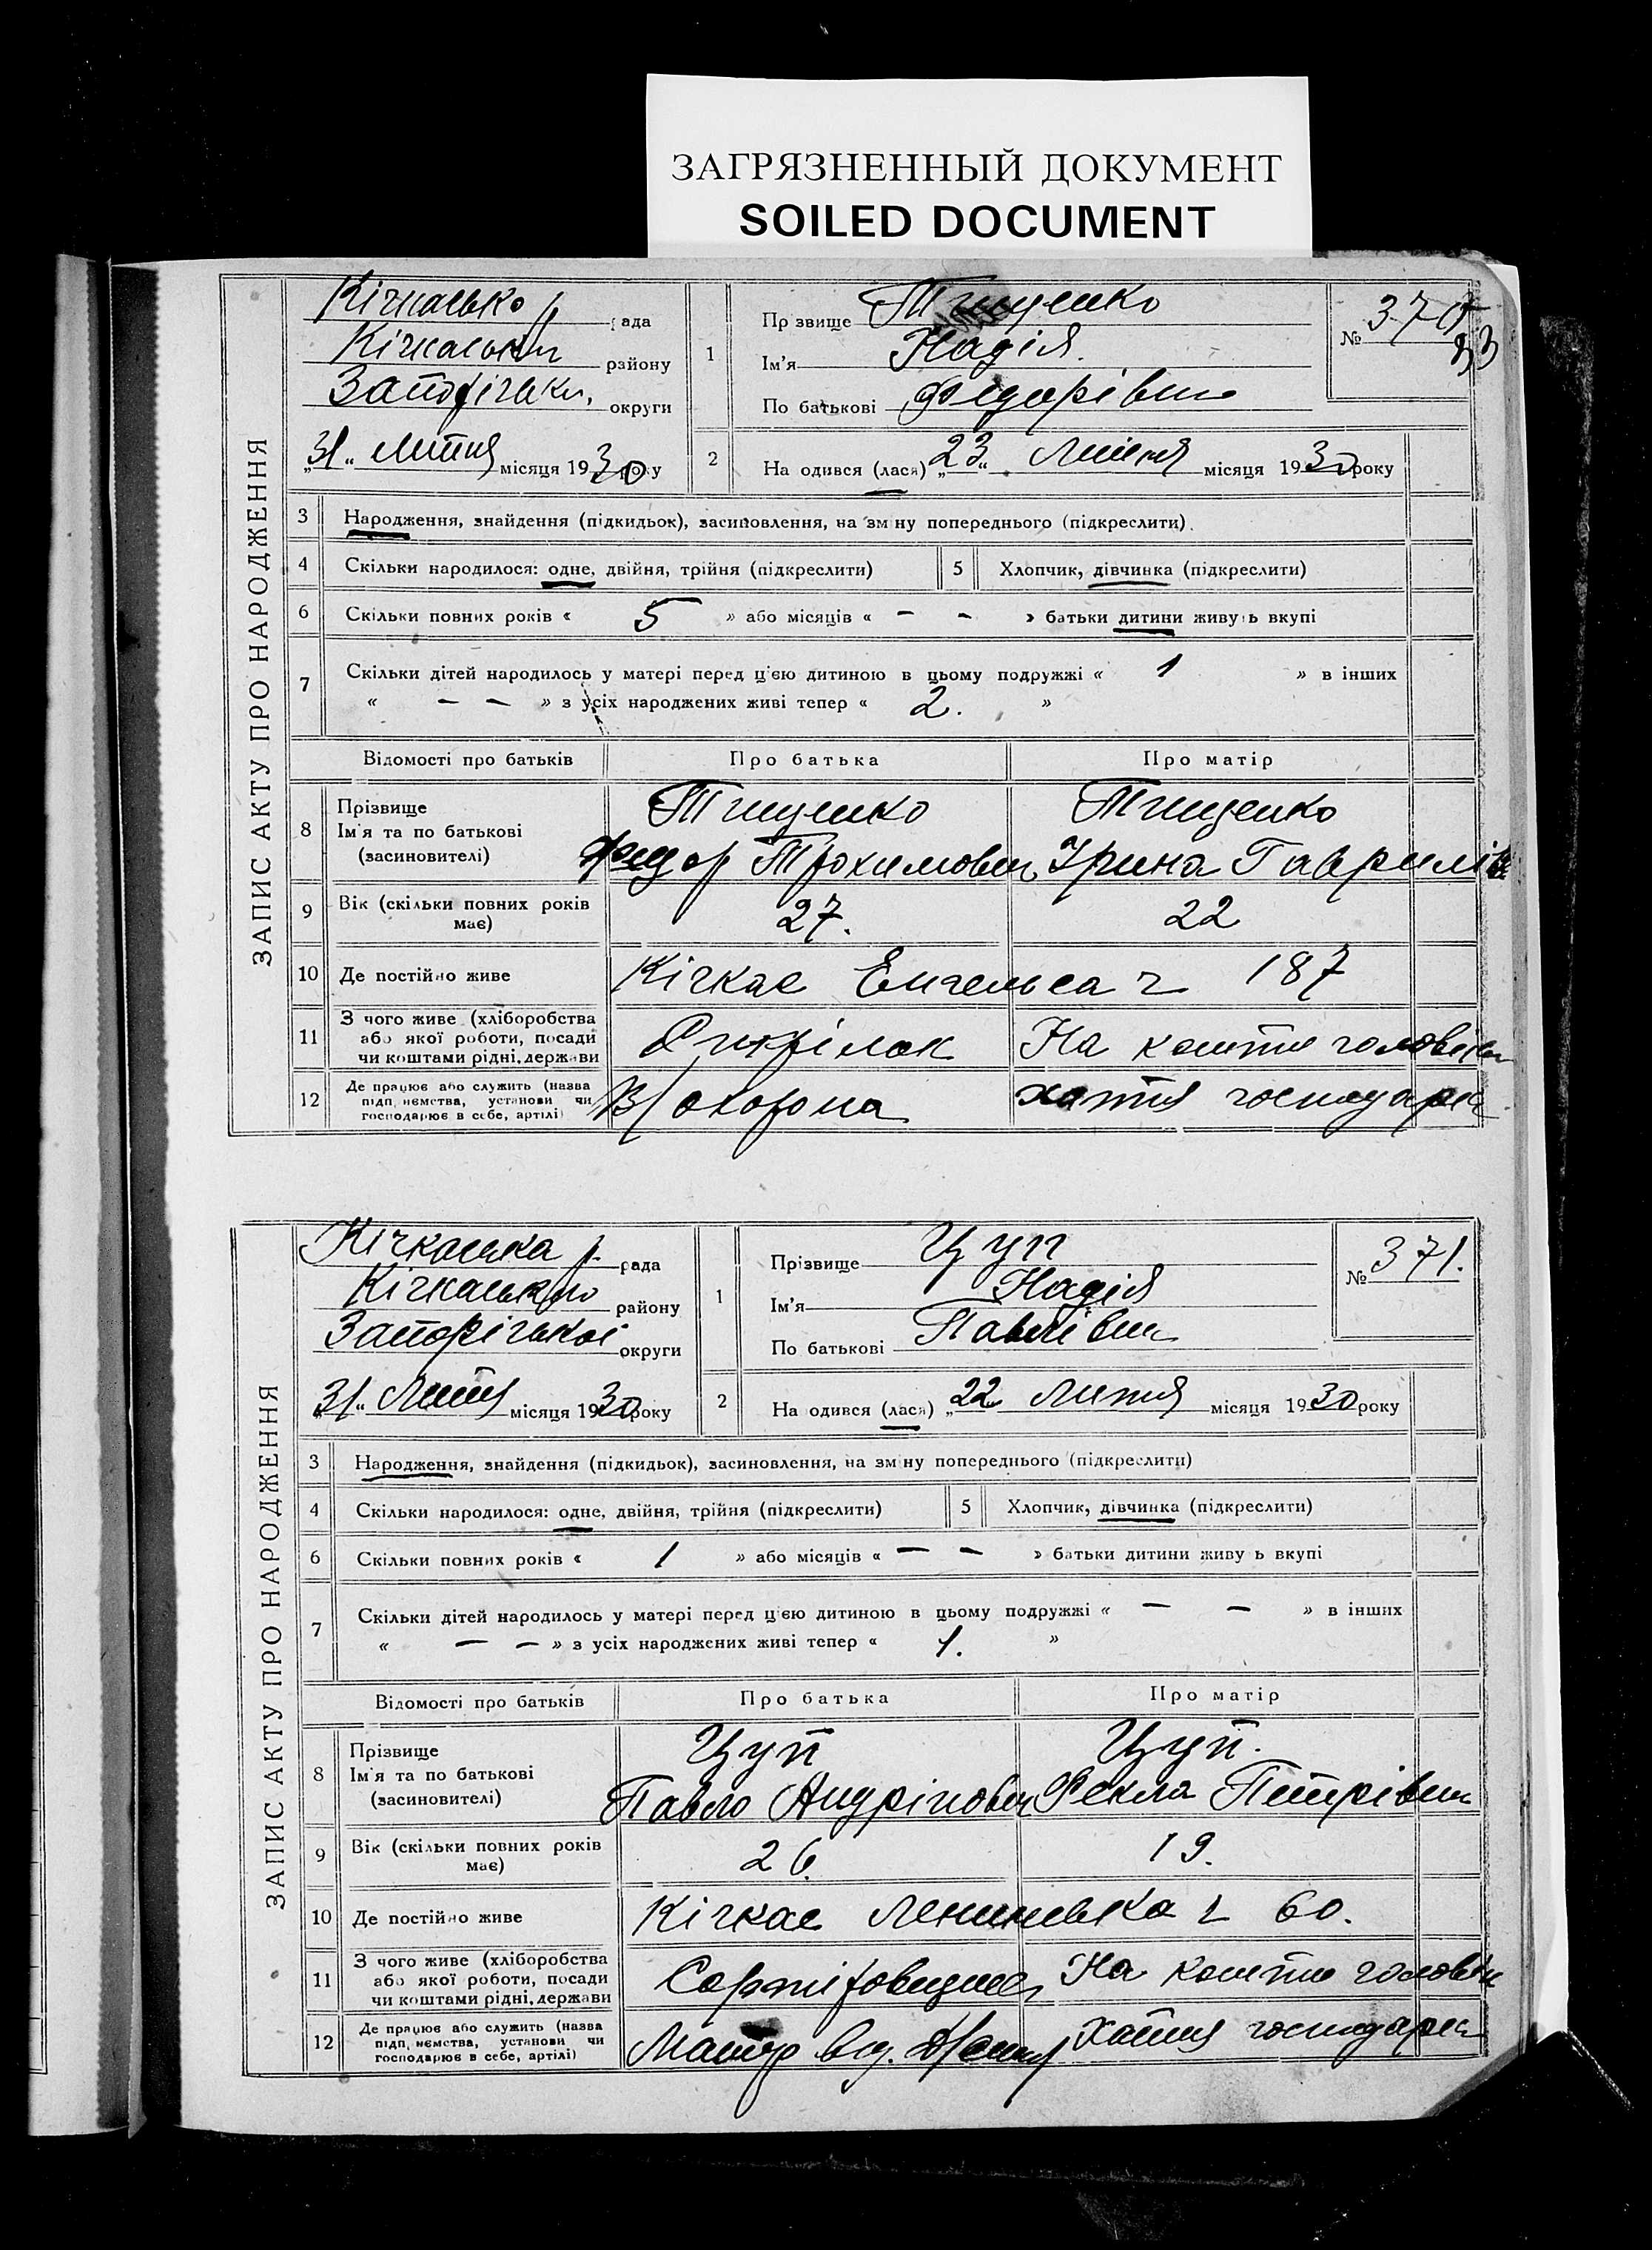 ЗАГРЯЗНЕННЫЙ ДОКУМЕНТ
SOILED DOCUMENT
ЗАПИС АКТУ ПРО НАРОДЖЕННЯ
Кічкасько рада
району
округи
31 Липня місяця 1930 року
1
Прізвище Тищенко
Ім'я Надія
По батькові Федорівна
№ 370
93
2
На одився (лася) „23“ Липня місяця 1930 року
3 Народження, знайдення (підкидьок), засиновлення, на зм ну попереднього (підкреслити).
4 Скільки народилося: одне, двійня, трійня (підкреслити) 5 Хлопчик, дівчинка (підкреслити)
6 Скільки повних років « 5 » або місяців « — — » батьки дитини живуть вкупі
7 Скільки дітей народилось у матері перед цією дитиною в цьому подружжі « 1 » в інших
« — — » з усіх народжених живі тепер « 2. »
Відомості про батьків Про батька Про матір
8 Прізвище
Ім'я та по батькові
(засиновителі)
Тищенко Тищенко
Федор Трохимович Ірина Гаврилів
9 Вік (скільки повних років має) 27. 22
10 Де постійно живе Кічкас Енгельса 187
11 З чого живе (хліборобства
або якої роботи, посади
чи коштами рідні, держави
Стрілок На кошти чоловіка
12 Де працює або служить (назва
підп, немства, установи чи
господарює в себе, артілі)
В/охорона хатня господарка
ЗАПИС АКТУ ПРО НАРОДЖЕННЯ
Кічкаська р. рада
Кічкасько району
Запорізької округи
31 Липня місяця 1930 року
1
Прізвище Цуп
Ім'я Надія
По батькові Павлівна
№ 371.
2
На одився (лася) „22“ Липня місяця 1930 року
3 Народження, знайдення (підкидьок), засиновлення, на зм ну попереднього (підкреслити)
4 Скільки народилося: одне, двійня, трійня (підкреслити) 5 Хлопчик, дівчинка (підкреслити)
6 Скільки повних років « 1 » або місяців « — — » батьки дитини живу ь вкупі
7 Скільки дітей народилось у матері перед цією дитиною в цьому подружжі « — — » в інших
« — — » з усіх народжених живі тепер « 1. »
Відомості про батьків Про батька Про матір
8 Прізвище
Ім'я та по батькові
(засиновителі)
Цуп Цуп.
Павло Андрійович Фекла Петрівна
9 Вік (скільки повних років має) 26. 19.
10 Де постійно живе Кічкас Ленинська 60.
11 З чого живе (хліборобства
або якої роботи, посади
чи коштами рідні, держави
На кошти чоловік
12 Де працює або служить (назва
підп, немства, установи чи
господарює в себе, артілі)
Хатня господарка